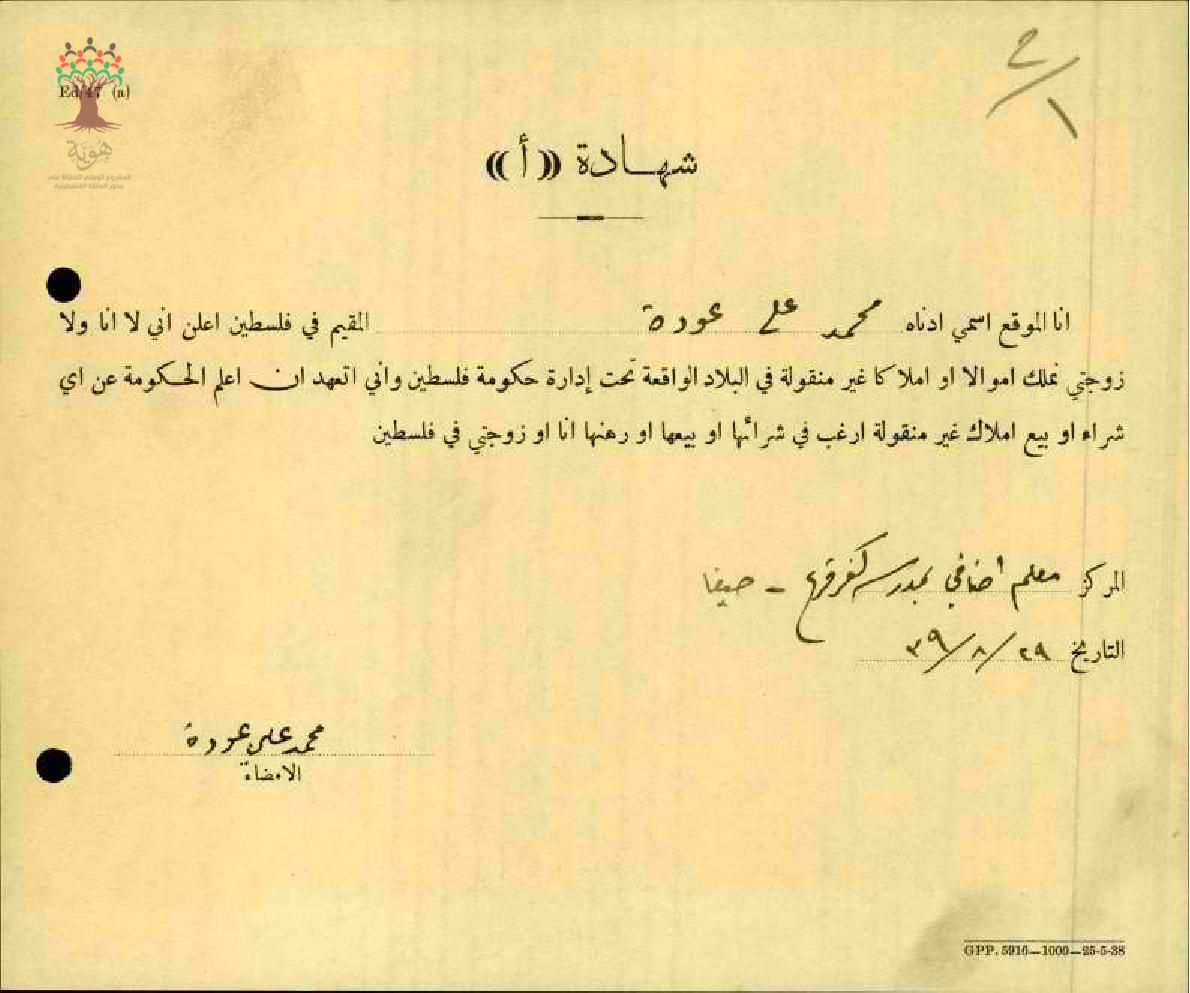 Ed/47 (a)
٢/١
هوية
المشروع الوطني للحفاظ على
جذور العائلة الفلسطينية
شهادة «أ»
انا الموقع اسمي ادناه محمد علي عودة المقيم في فلسطين اعلن اني لا انا ولا
زوجتي نملك اموالا او املاكا غير منقولة في البلاد الواقعة تحت إدارة حكومة فلسطين واني اتعهد ان اعلم الحكومة عن اي
شراء او بيع املاك غير منقولة ارغب في شرائها او بيعها او رهنها انا او زوجتي في فلسطين
المركز معلم اضافي بمدرسة كفر قرع - حيفا
التاريخ ٢٩/٨/٣٩
محمد علي عودة
الامضاء
GPP. 5916—1000—25-5-38